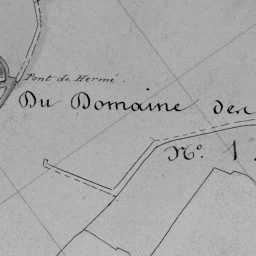 Pont de Hermé.
Du Domaine des
Nº. 1.